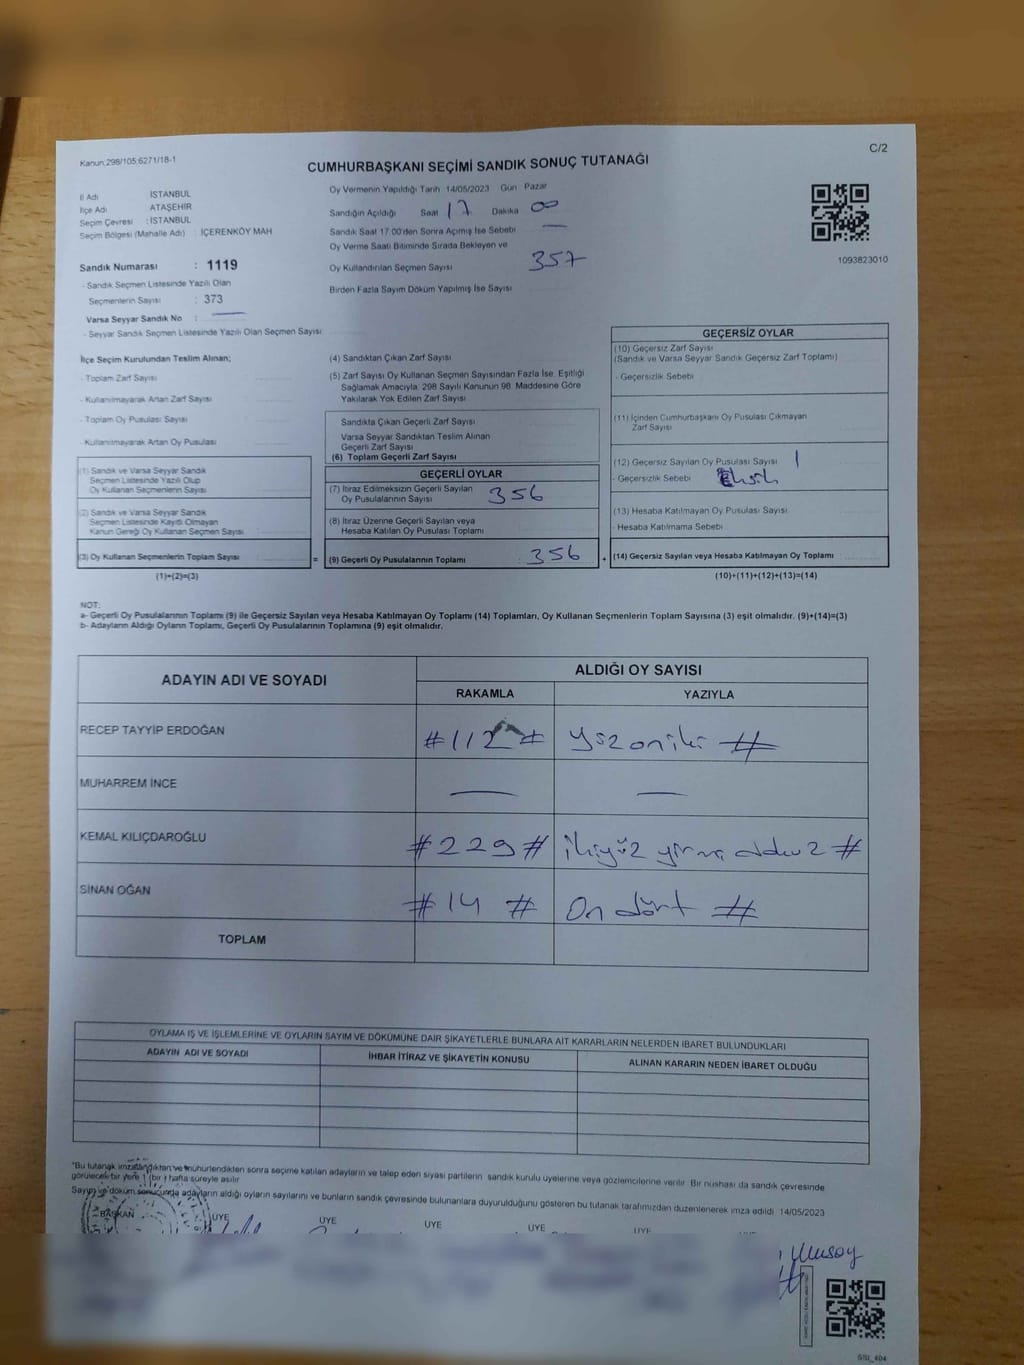 Kanun:298/105:6271/18-1
CUMHURBAŞKANI SEÇİMİ SANDIK SONUÇ TUTANAĞI
C/2
İl Adı İSTANBUL
İlçe Adı ATAŞEHİR
Seçim Çevresi : İSTANBUL
Seçim Bölgesi (Mahalle Adı) : İÇERENKÖY MAH
Sandık Numarası : 1119
- Sandık Seçmen Listesinde Yazılı Olan
Seçmenlerin Sayısı : 373
Varsa Seyyar Sandık No : —
- Seyyar Sandık Seçmen Listesinde Yazılı Olan Seçmen Sayısı
Oy Vermenin Yapıldığı Tarih 14/05/2023 Gün Pazar
Sandığın Açıldığı Saat 17 Dakika 00
Sandık Saat 17:00'den Sonra Açılmış İse Sebebi —
Oy Verme Saati Bitiminde Sırada Bekleyen ve
Oy Kullandırılan Seçmen Sayısı 357
Birden Fazla Sayım Döküm Yapılmış İse Sayısı
1093823010
İlçe Seçim Kurulundan Teslim Alınan;
- Toplam Zarf Sayısı
- Kullanılmayarak Artan Zarf Sayısı
- Toplam Oy Pusulası Sayısı
- Kullanılmayarak Artan Oy Pusulası
(1) Sandık ve Varsa Seyyar Sandık
Seçmen Listesinde Yazılı Olup
Oy Kullanan Seçmenlerin Sayısı
(2) Sandık ve Varsa Seyyar Sandık
Seçmen Listesinde Kayıtlı Olmayan
Kanun Gereği Oy Kullanan Seçmen Sayısı
(3) Oy Kullanan Seçmenlerin Toplam Sayısı =
(1)+(2)=(3)
(4) Sandıktan Çıkan Zarf Sayısı
(5) Zarf Sayısı Oy Kullanan Seçmen Sayısından Fazla İse, Eşitliği
Sağlamak Amacıyla, 298 Sayılı Kanunun 98. Maddesine Göre
Yakılarak Yok Edilen Zarf Sayısı
Sandıkta Çıkan Geçerli Zarf Sayısı
Varsa Seyyar Sandıktan Teslim Alınan
Geçerli Zarf Sayısı
(6) Toplam Geçerli Zarf Sayısı
GEÇERLİ OYLAR
(7) İtiraz Edilmeksizin Geçerli Sayılan
Oy Pusulalarının Sayısı 356
(8) İtiraz Üzerine Geçerli Sayılan veya
Hesaba Katılan Oy Pusulası Toplamı
(9) Geçerli Oy Pusulalarının Toplamı 356 +
GEÇERSİZ OYLAR
(10) Geçersiz Zarf Sayısı
(Sandık ve Varsa Seyyar Sandık Geçersiz Zarf Toplamı)
- Geçersizlik Sebebi
(11) İçinden Cumhurbaşkanı Oy Pusulası Çıkmayan
Zarf Sayısı
(12) Geçersiz Sayılan Oy Pusulası Sayısı 1
- Geçersizlik Sebebi
(13) Hesaba Katılmayan Oy Pusulası Sayısı
Hesaba Katılmama Sebebi
(14) Geçersiz Sayılan veya Hesaba Katılmayan Oy Toplamı
(10)+(11)+(12)+(13)=(14)
NOT:
a- Geçerli Oy Pusulalarının Toplamı (9) ile Geçersiz Sayılan veya Hesaba Katılmayan Oy Toplamı (14) Toplamları, Oy Kullanan Seçmenlerin Toplam Sayısına (3) eşit olmalıdır. (9)+(14)=(3)
b- Adayların Aldığı Oyların Toplamı, Geçerli Oy Pusulalarının Toplamına (9) eşit olmalıdır.
ADAYIN ADI VE SOYADI
ALDIĞI OY SAYISI
RAKAMLA YAZIYLA
RECEP TAYYİP ERDOĞAN #112# Yüzoniki #
MUHARREM İNCE — —
KEMAL KILIÇDAROĞLU #229# ikiyüz yirmi dokuz #
SİNAN OĞAN #14 # On dört #
TOPLAM
OYLAMA İŞ VE İŞLEMLERİNE VE OYLARIN SAYIM VE DÖKÜMÜNE DAİR ŞİKAYETLERLE BUNLARA AİT KARARLARIN NELERDEN İBARET BULUNDUKLARI
ADAYIN ADI VE SOYADI İHBAR İTİRAZ VE ŞİKAYETİN KONUSU ALINAN KARARIN NEDEN İBARET OLDUĞU
*Bu tutanak imzalandıktan ve mühürlendikten sonra seçime katılan adayların ve talep eden siyasi partilerin sandık kurulu üyelerine veya gözlemcilerine verilir. Bir nüshası da sandık çevresinde
görülecek bir yere 1 (bir) hafta süreyle asılır
Sayım ve döküm sonucunda adayların aldığı oyların sayılarını ve bunların sandık çevresinde bulunanlara duyurulduğunu gösteren bu tutanak tarafımızdan düzenlenerek imza edildi 14/05/2023
BAŞKAN ÜYE ÜYE ÜYE ÜYE ÜYE
SSI_404